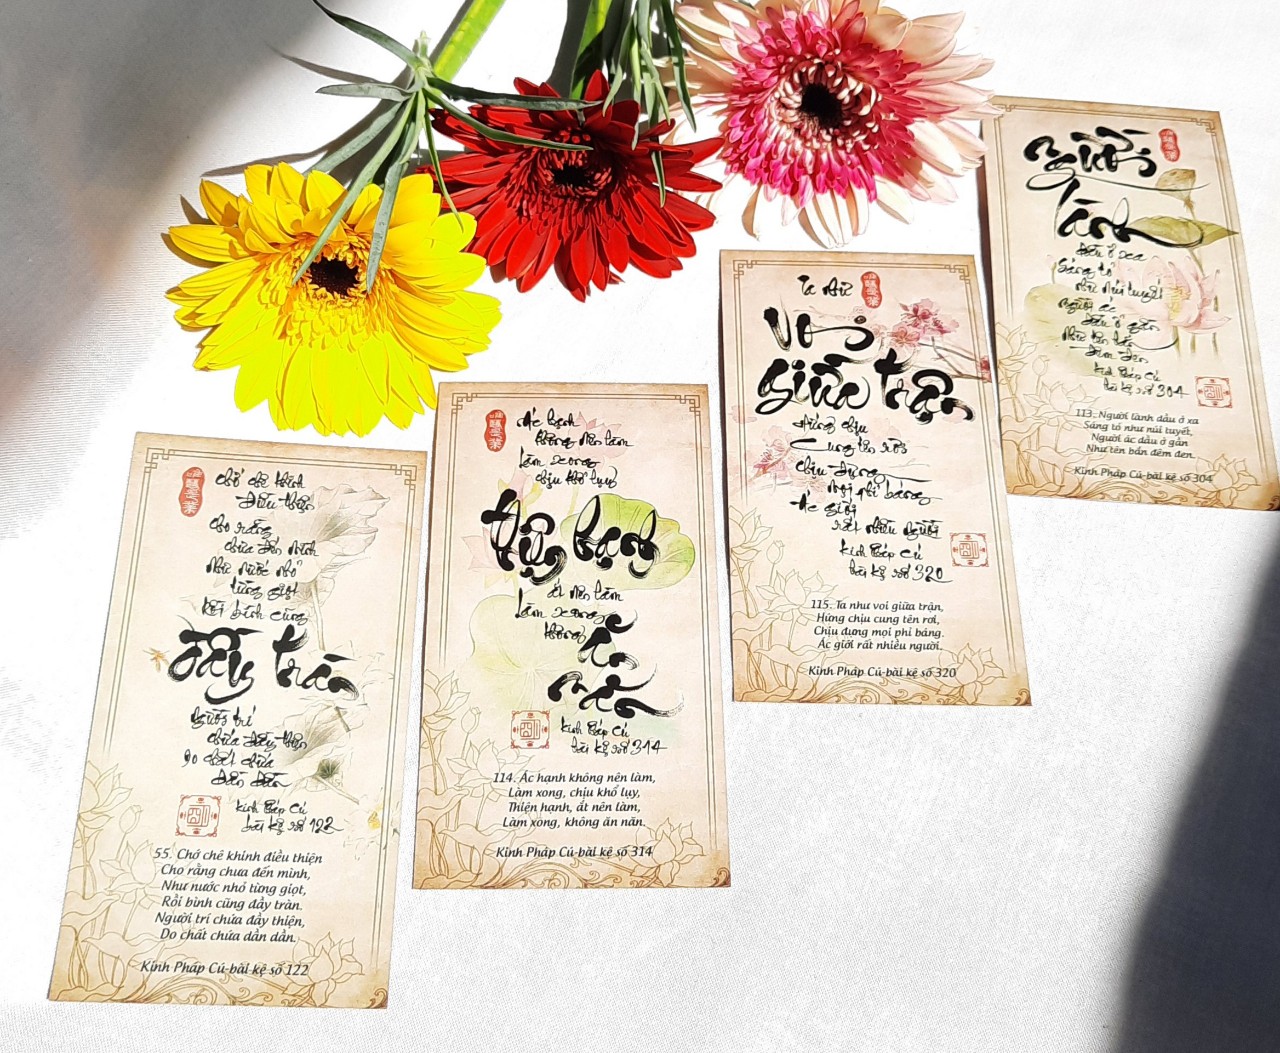 Chớ chê khinh
điều thiện
cho rằng
chưa đến mình
như nước nhỏ
từng giọt
rồi bình cũng
đầy tràn
người trí
chứa đầy thiện
do chất chứa
dần dần
kinh Pháp Cú
bài kệ số 122
55. Chớ chê khinh điều thiện
Cho rằng chưa đến mình,
Như nước nhỏ từng giọt,
Rồi bình cũng đầy tràn.
Người trí chứa đầy thiện,
Do chất chứa dần dần.
Kinh Pháp Cú-bài kệ số 122
Ác hạnh
không nên làm
làm xong
chịu khổ lụy
thiện hạnh
ắt nên làm
làm xong
không ăn
năn
kinh Pháp Cú
bài kệ số 314
114. Ác hạnh không nên làm,
Làm xong, chịu khổ lụy,
Thiện hạnh, ắt nên làm,
Làm xong, không ăn năn.
Kinh Pháp Cú-bài kệ số 314
Ta như
voi
giữa trận
hứng chịu
cung tên rơi
chịu đựng
mọi phỉ báng
ác giới
rất nhiều người
kinh Pháp Cú
bài kệ số 320
115. Ta như voi giữa trận,
Hứng chịu cung tên rơi,
Chịu đựng mọi phỉ báng.
Ác giới rất nhiều người.
Kinh Pháp Cú-bài kệ số 320
Người
lành
dầu ở xa
sáng tỏ
như núi tuyết
người ác
dầu ở gần
như tên bắn
đêm đen
kinh Pháp Cú
bài kệ số 304
113. Người lành dầu ở xa
Sáng tỏ như núi tuyết,
Người ác dầu ở gần
Như tên bắn đêm đen.
Kinh Pháp Cú-bài kệ số 304